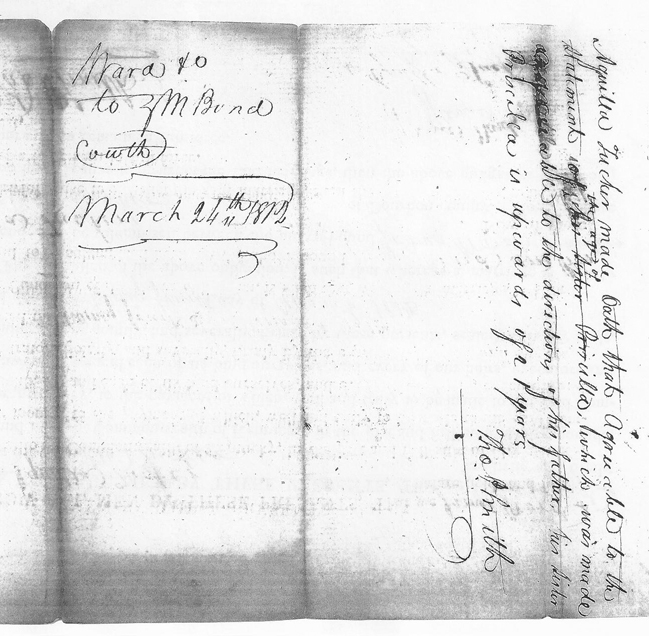 Ward &c
to M Bond
Couth
March 24th 1812
Aquilla Tucker made Oath that Agreeable to the
statement of the age of his sister Priscilla, which was made
agreeable to the direction of his father, his sister
Priscilla is upwards of 21 years
Tho. Smith